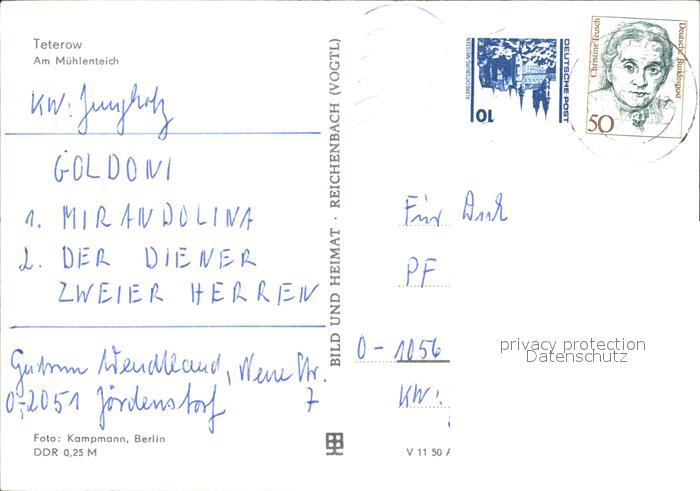 Teterow
Am Mühlenteich
KW: Jungholz
GOLDONI
1. MIRANDOLINA
2. DER DIENER
ZWEIER HERREN
Gudrun Wendland, Neue Str.
0-2051 Jördenstorf 7
Foto: Kampmann, Berlin
DDR 0,25 M
BILD UND HEIMAT · REICHENBACH (VOGTL)
V 11 50
DEUTSCHE POST
ALBRECHTSBURG · MEISSEN
10
Christine Teusch
Deutsche Bundespost
50
Für Dich
PF
0 - 1056
KW:
privacy protection
Datenschutz